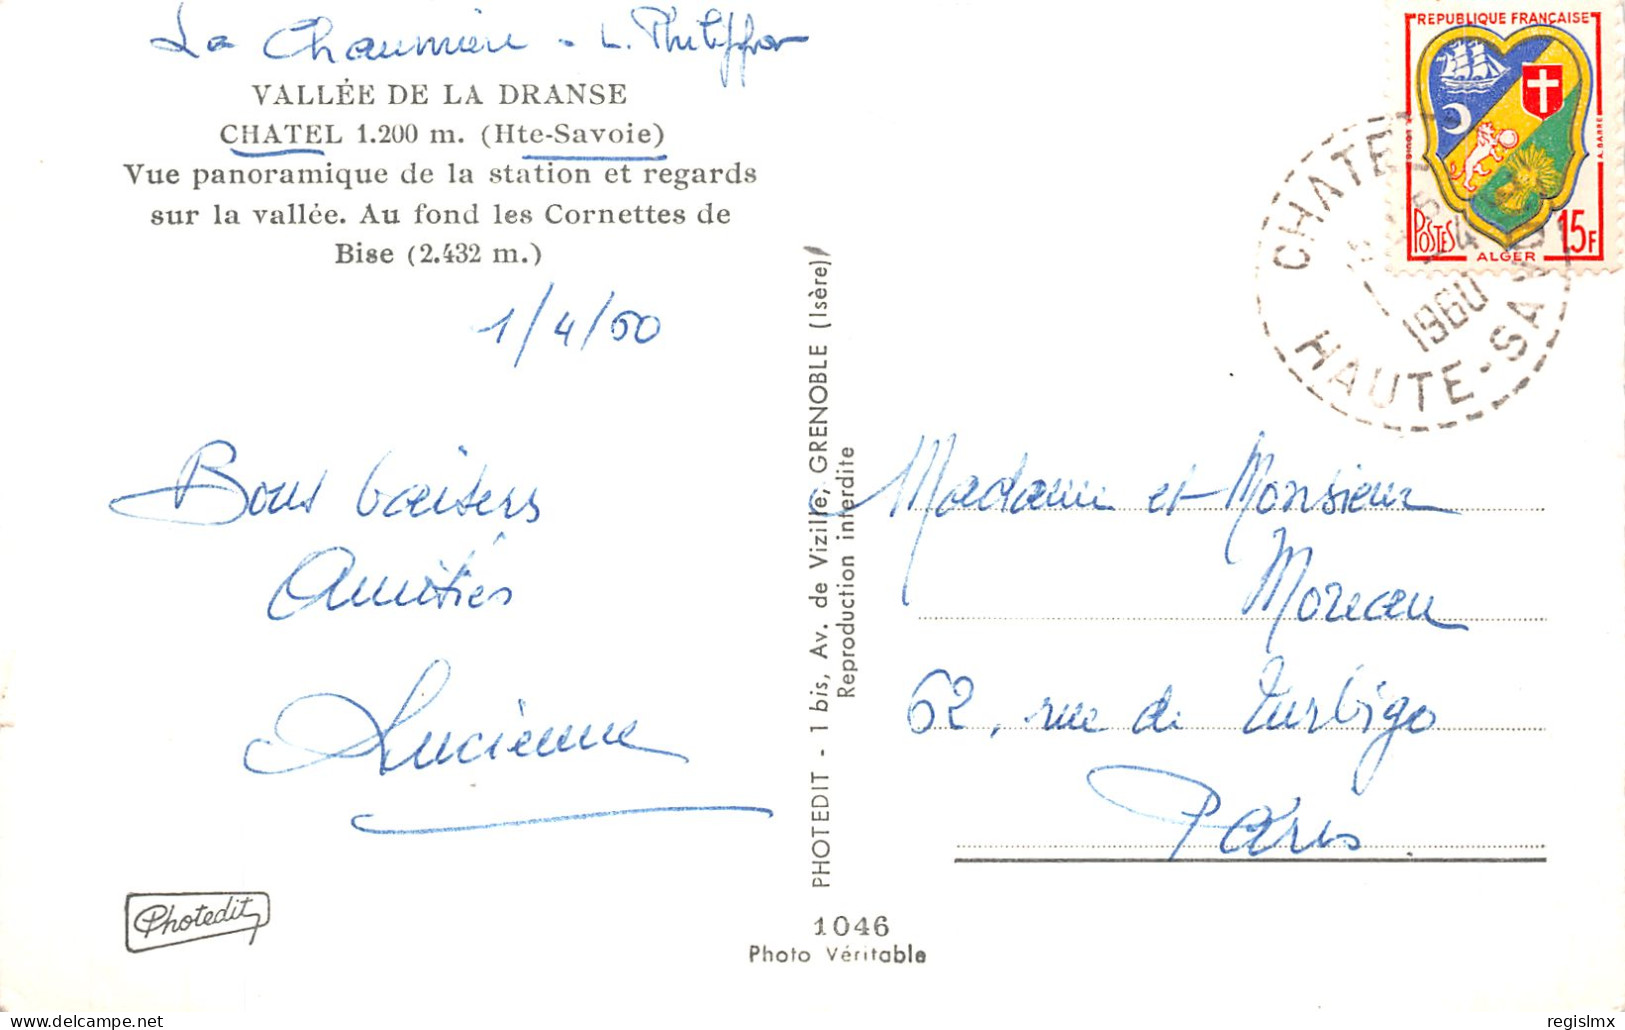 La Chaumière - L. Philippon
VALLÉE DE LA DRANSE
CHATEL 1.200 m. (Hte-Savoie)
Vue panoramique de la station et regards
sur la vallée. Au fond les Cornettes de
Bise (2.432 m.)
1/4/60
Bons baisers
Amitiés
Lucienne
Photedit
PHOTEDIT - 1 bis, Av. de Vizille, GRENOBLE (Isère)
Reproduction interdite
1046
Photo Véritable
REPUBLIQUE FRANÇAISE
POSTES
15F
ALGER
CHATEL
1960
HAUTE-SAVOIE
Madame et Monsieur
Moreau
62, rue de Turbigo
Paris
delcampe.net
regislmx